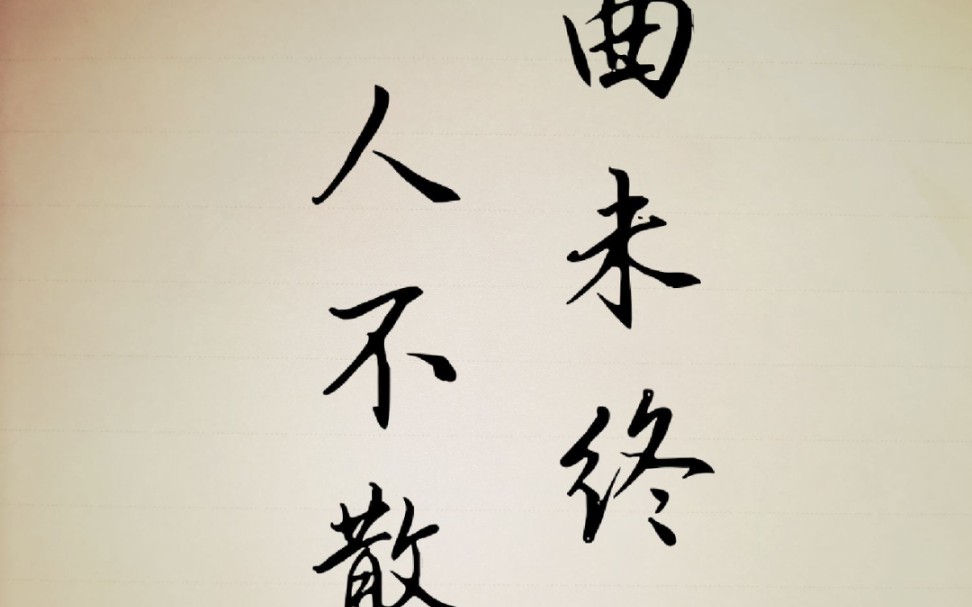 曲未终
人不散